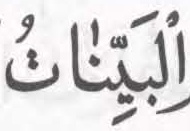 الْبَيِّنٰاتُ